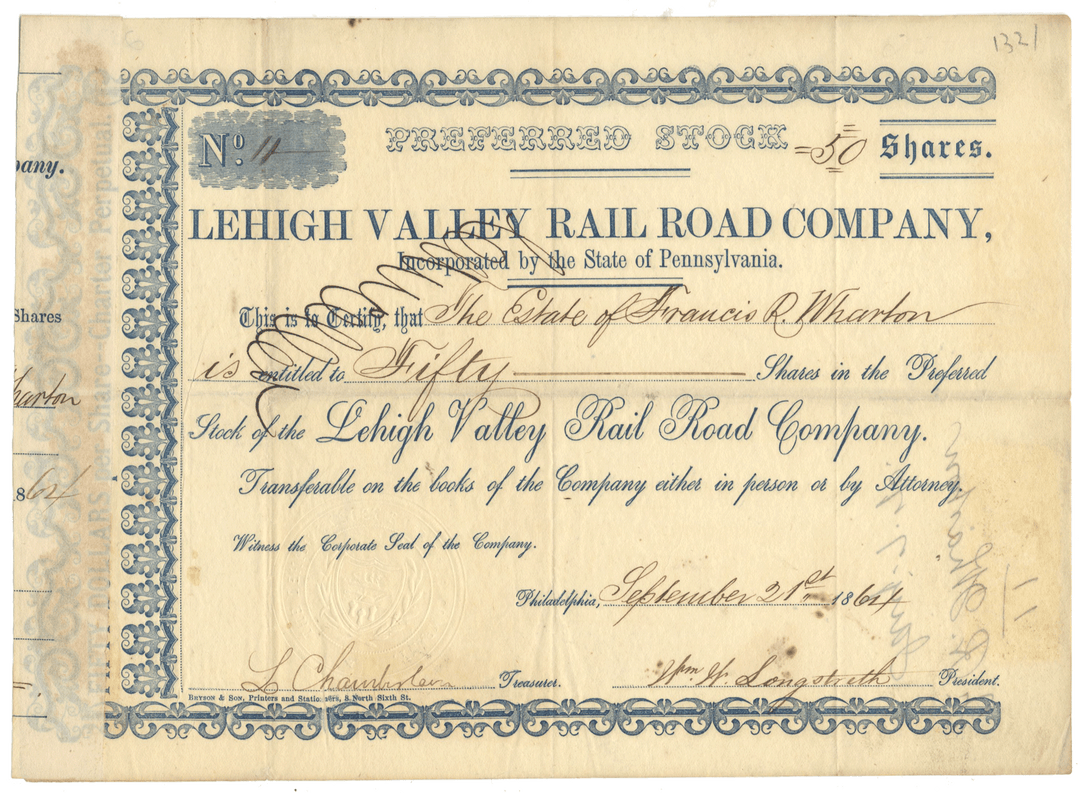 1321
Nº. 11
PREFERRED STOCK
=50 Shares.
pany.
LEHIGH VALLEY RAIL ROAD COMPANY,
Incorporated by the State of Pennsylvania.
Shares
This is to Certify, that The Estate of Francis R. Wharton
is entitled to Fifty Shares in the Preferred
harton
Stock of the Lehigh Valley Rail Road Company.
Transferable on the books of the Company either in person or by Attorney.
864
Witness the Corporate Seal of the Company.
Philadelphia, September 21st 1864
L Chamberlain Treasurer. Wm W. Longstreth President.
BRYSON & SON, Printers and Stationers, 8 North Sixth St.
FIFTY DOLLARS per Share—Charter Perpetual.
11